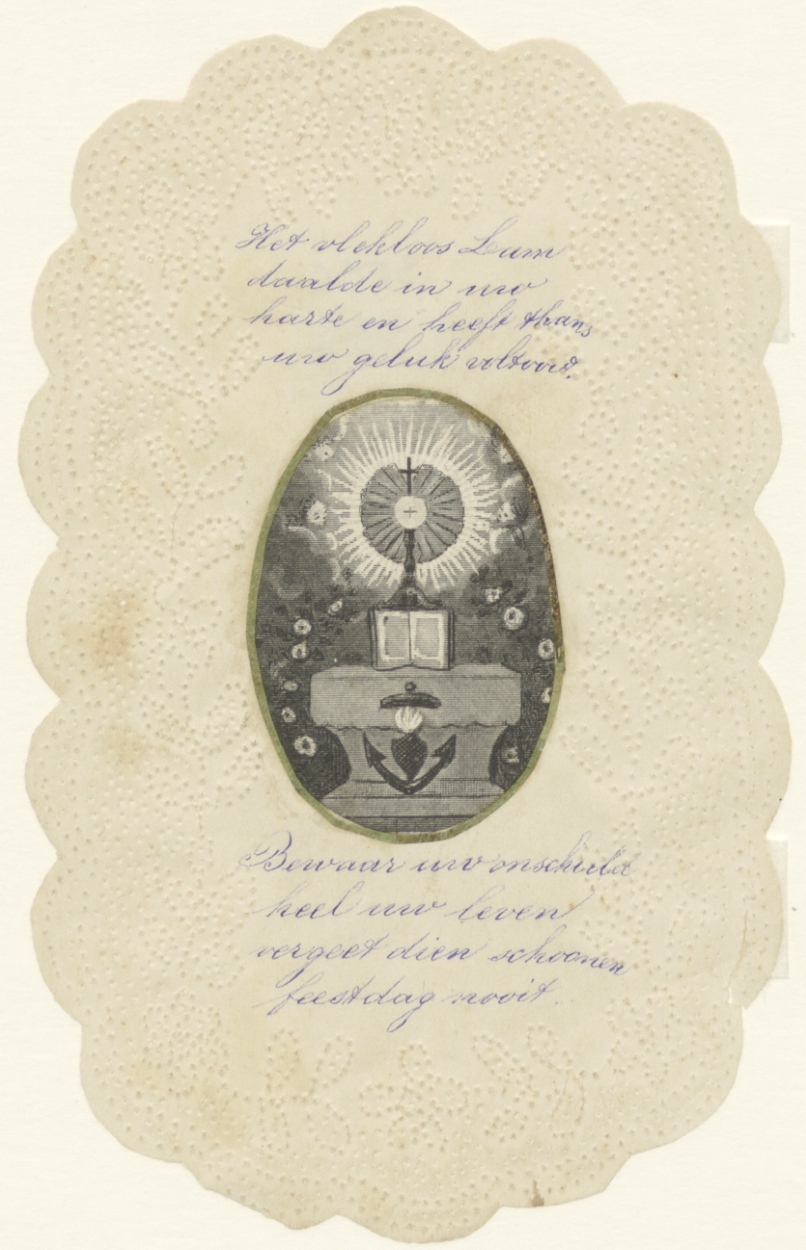 Het vlekloos Lam
daalde in uw
harte en heeft thans
uw geluk voltooid.
Bewaar uw onschuld
heel uw leven
vergeet dien schoonen
feestdag nooit.